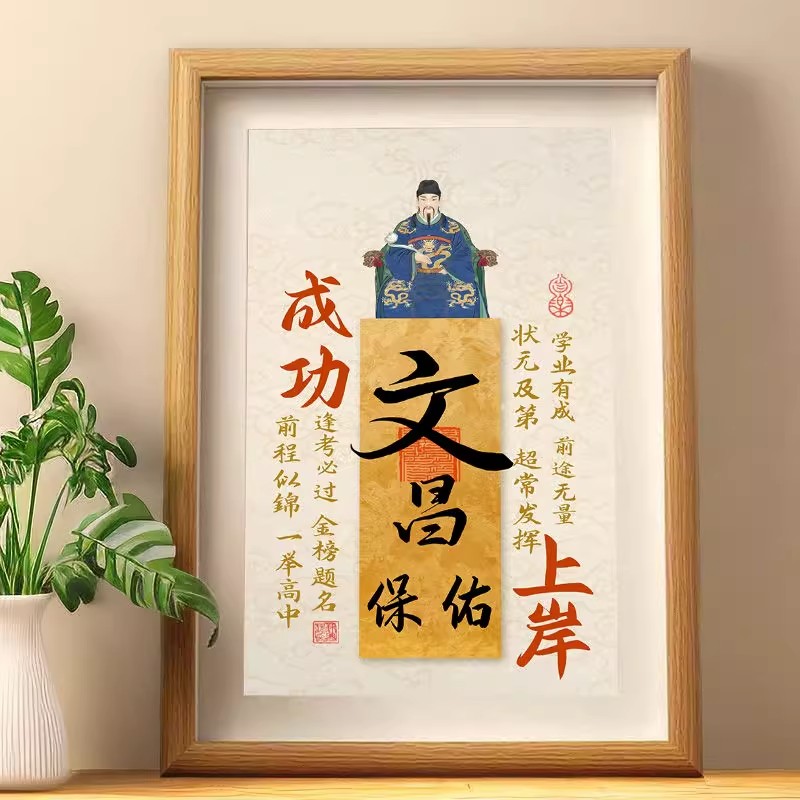 成功
文昌
保佑
上岸
学业有成 前途无量
状元及第 超常发挥
逢考必过 金榜题名
前程似錦 一举高中